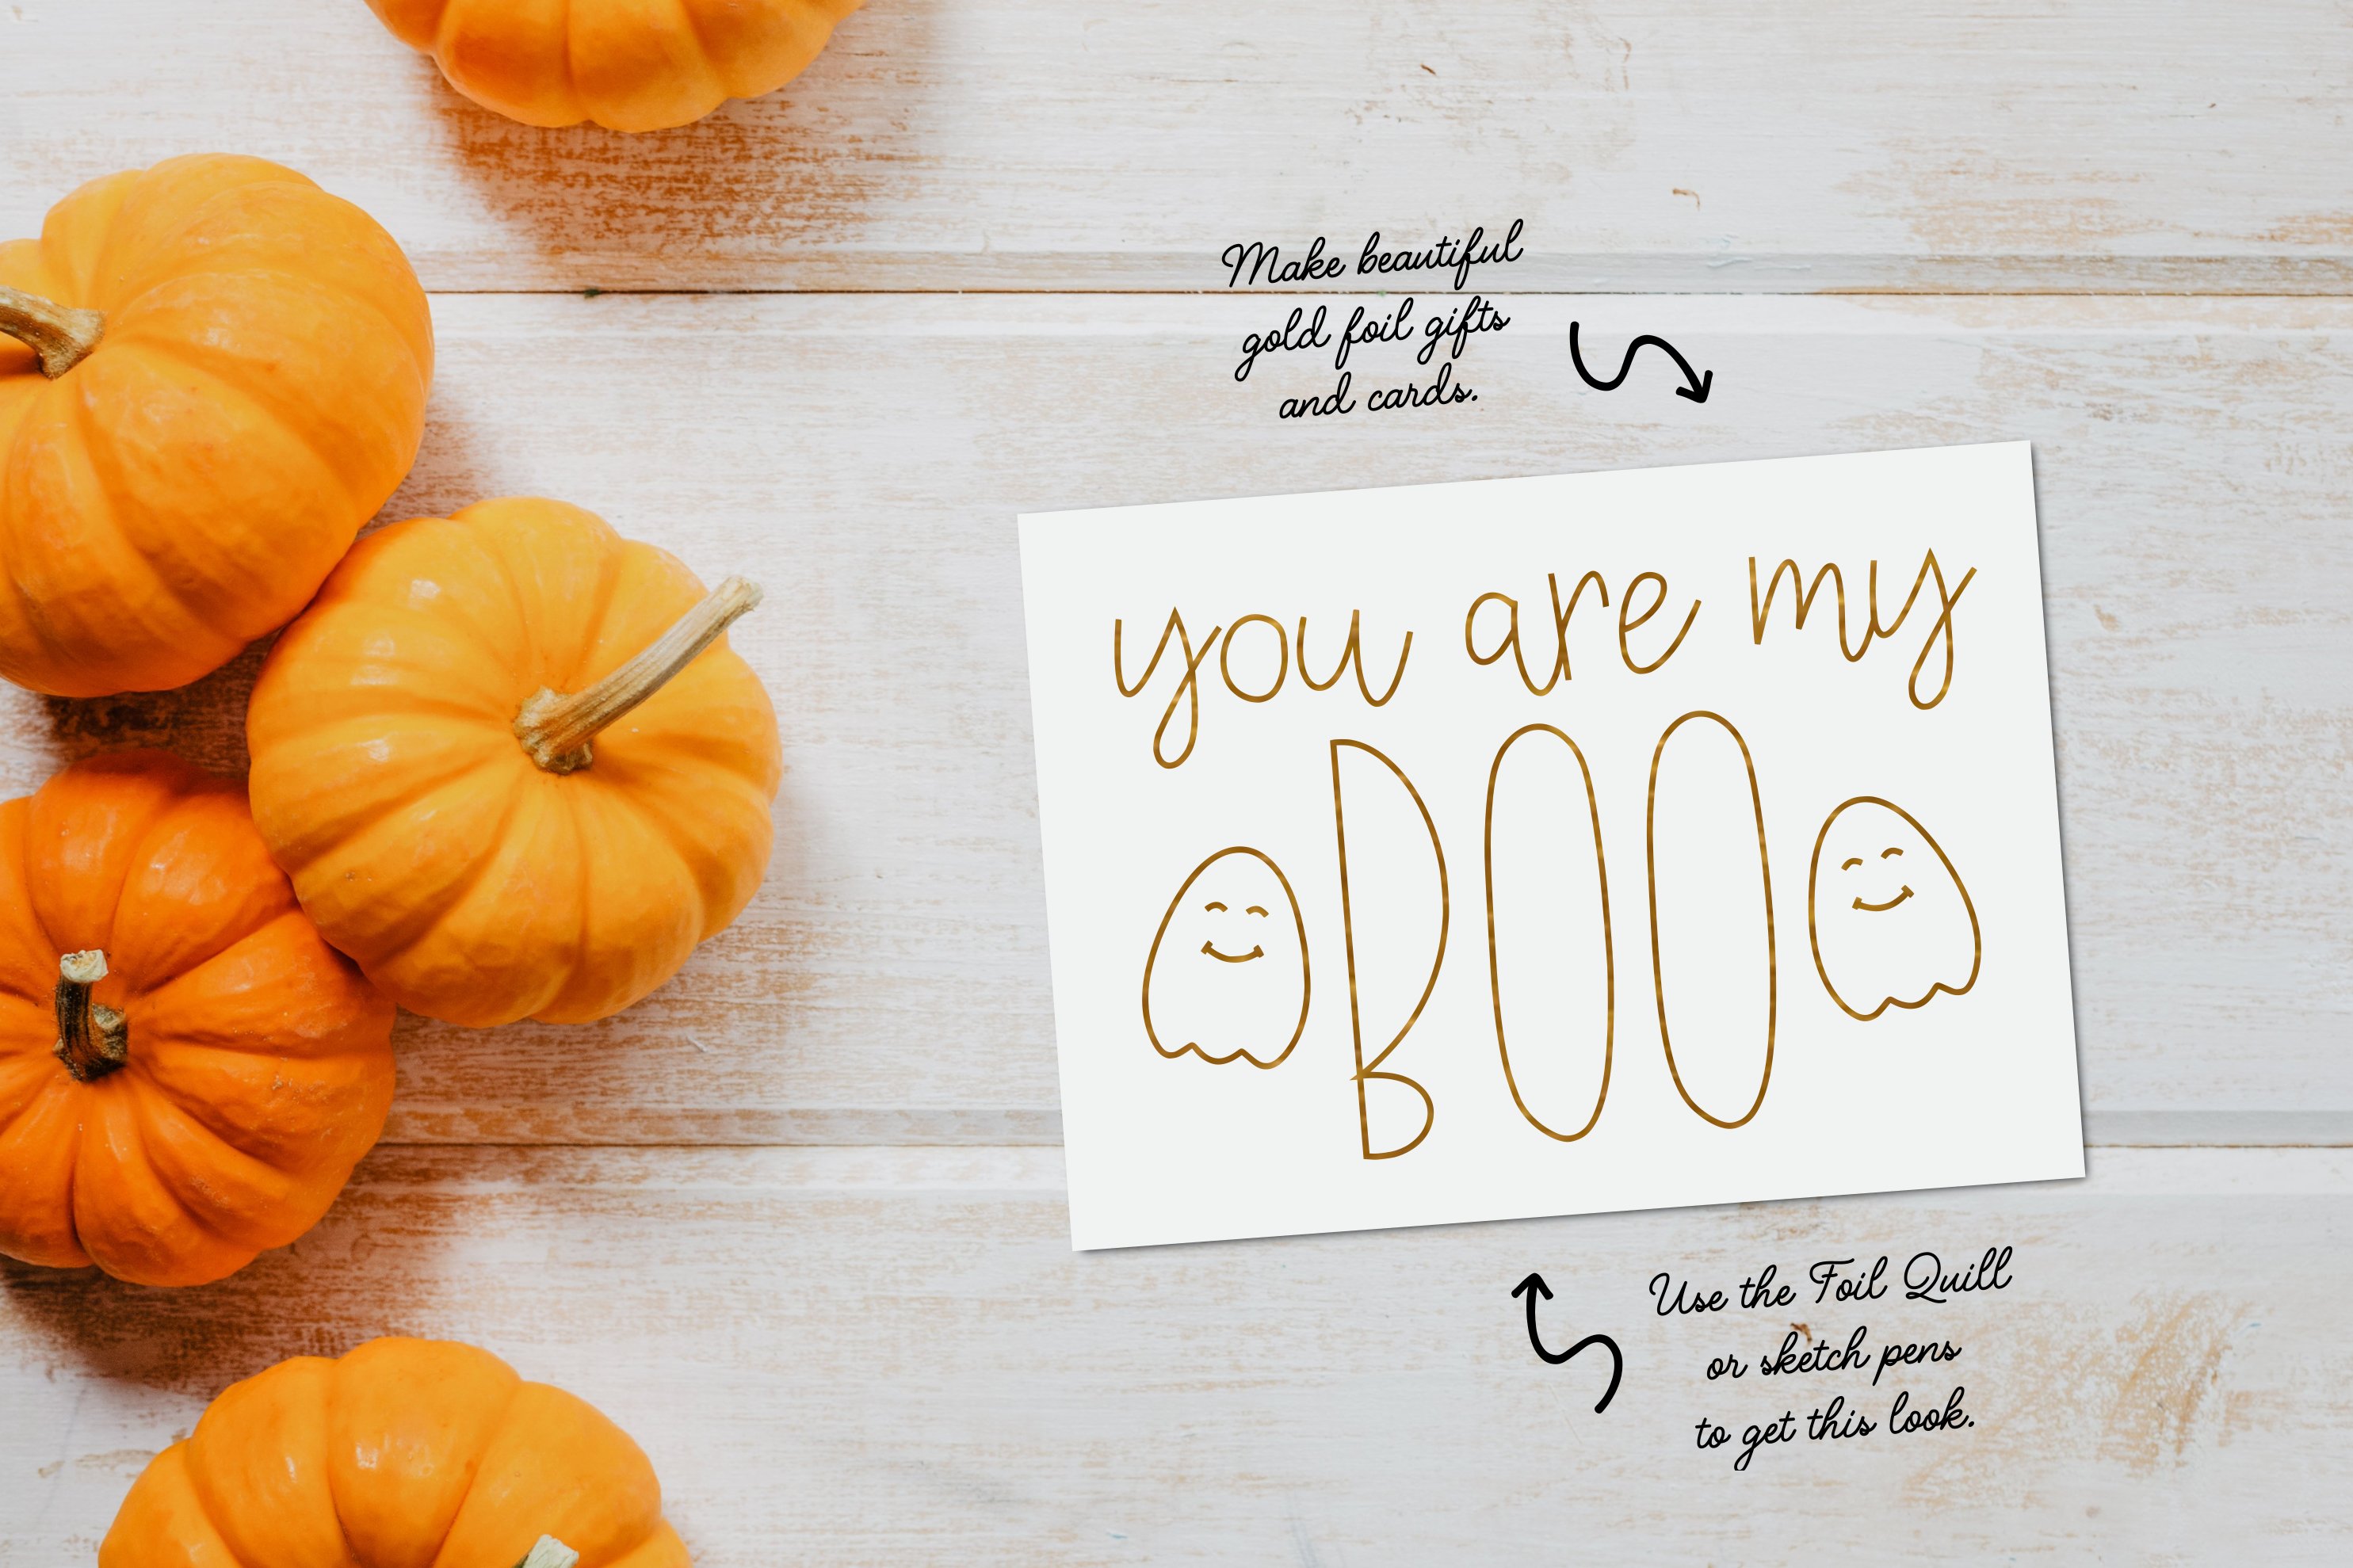 Make beautiful
gold foil gifts
and cards.
you are my
BOO
Use the Foil Quill
or sketch pens
to get this look.